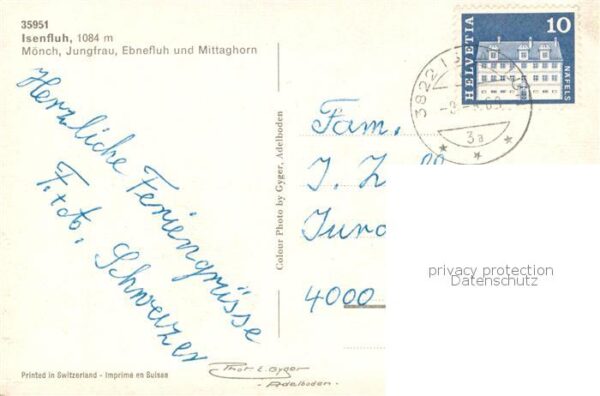 35951
Isenfluh, 1084 m
Mönch, Jungfrau, Ebnefluh und Mittaghorn
Herzliche Feriengrüsse
Schweizer
Colour Photo by Gyger, Adelboden
HELVETIA
10
NÄFELS
3822
3a
Fam.
J. Z
Jura
4000
privacy protection
Datenschutz
Printed in Switzerland - Imprimé en Suisse
Phot E. Gyger
- Adelboden -